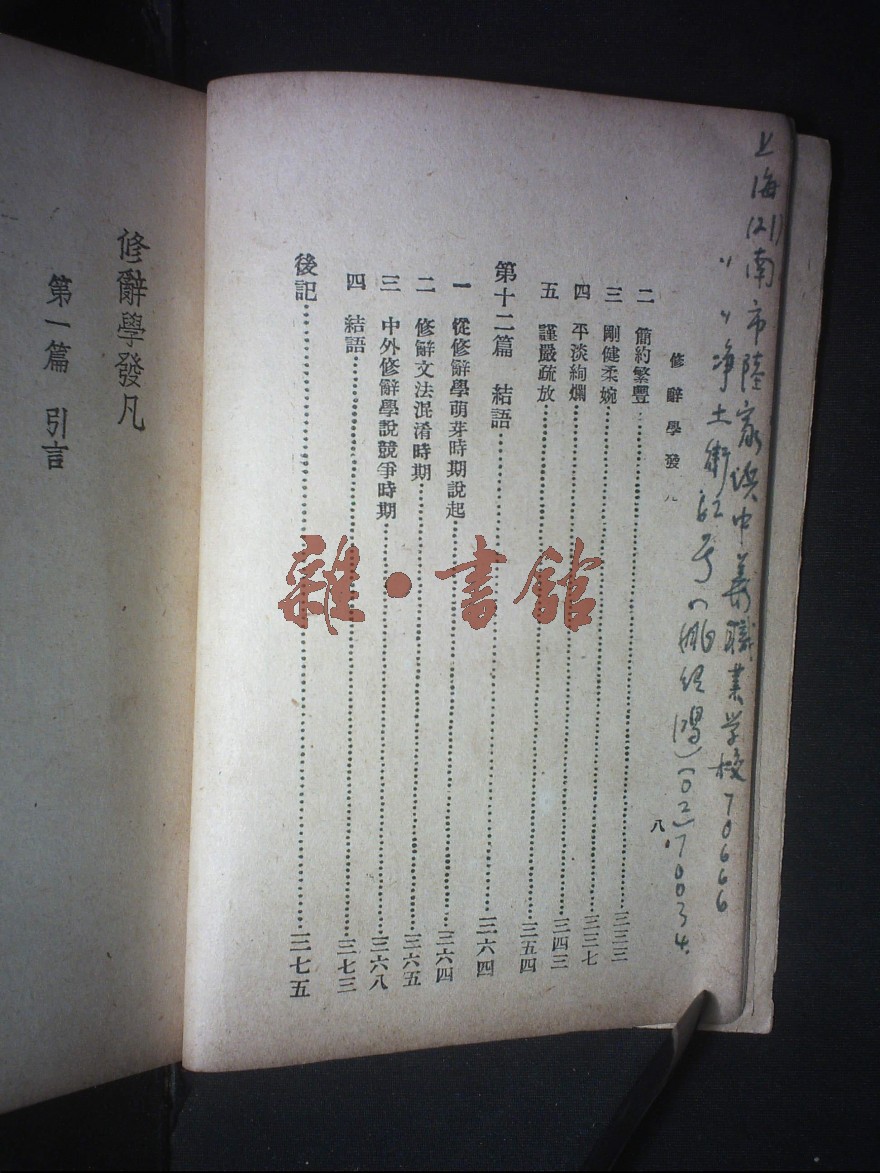 上海(21)南市陸家浜中華職業学校70666
〃 〃 净土街62号 (02)70034.
修辭學發 八
二 簡約繁豐……三三三
三 剛健柔婉……三三七
四 平淡絢爛……三四三
五 謹嚴疏放……三五四
第十二篇 結語……三六四
一 從修辭學萌芽時期說起……三六四
二 修辭文法混淆時期……三六五
三 中外修辭學說競爭時期……三六八
四 結語……三七三
後記……三七五
修辭學發凡
第一篇 引言
雜·書館